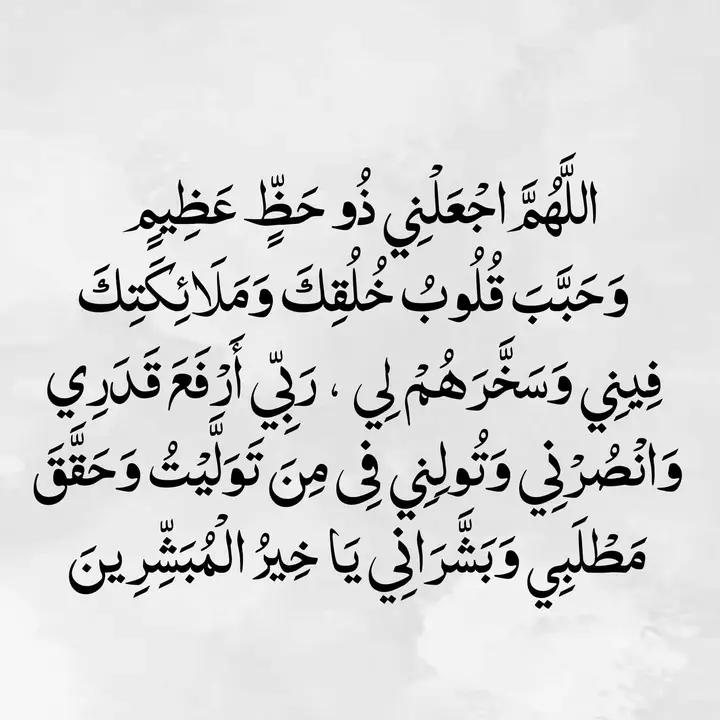 اللَّهُمَّ اجْعَلْنِي ذُو حَظٍّ عَظِيمٍ
وَحَبَّبَ قُلُوبُ خُلُقِكَ وَمَلَائِكَتِكَ
فِينِي وَسَخَّرَهُمْ لِي ، رَبِّي أَرْفَعَ قَدَرِي
وَانْصُرْنِي وَتُولِنِي فِى مِنَ تَوَلَّيْتُ وَحَقَّقَ
مَطْلَبِي وَبَشَّرَانِي يَا خِيرُ الْمُبَشِّرِينَ